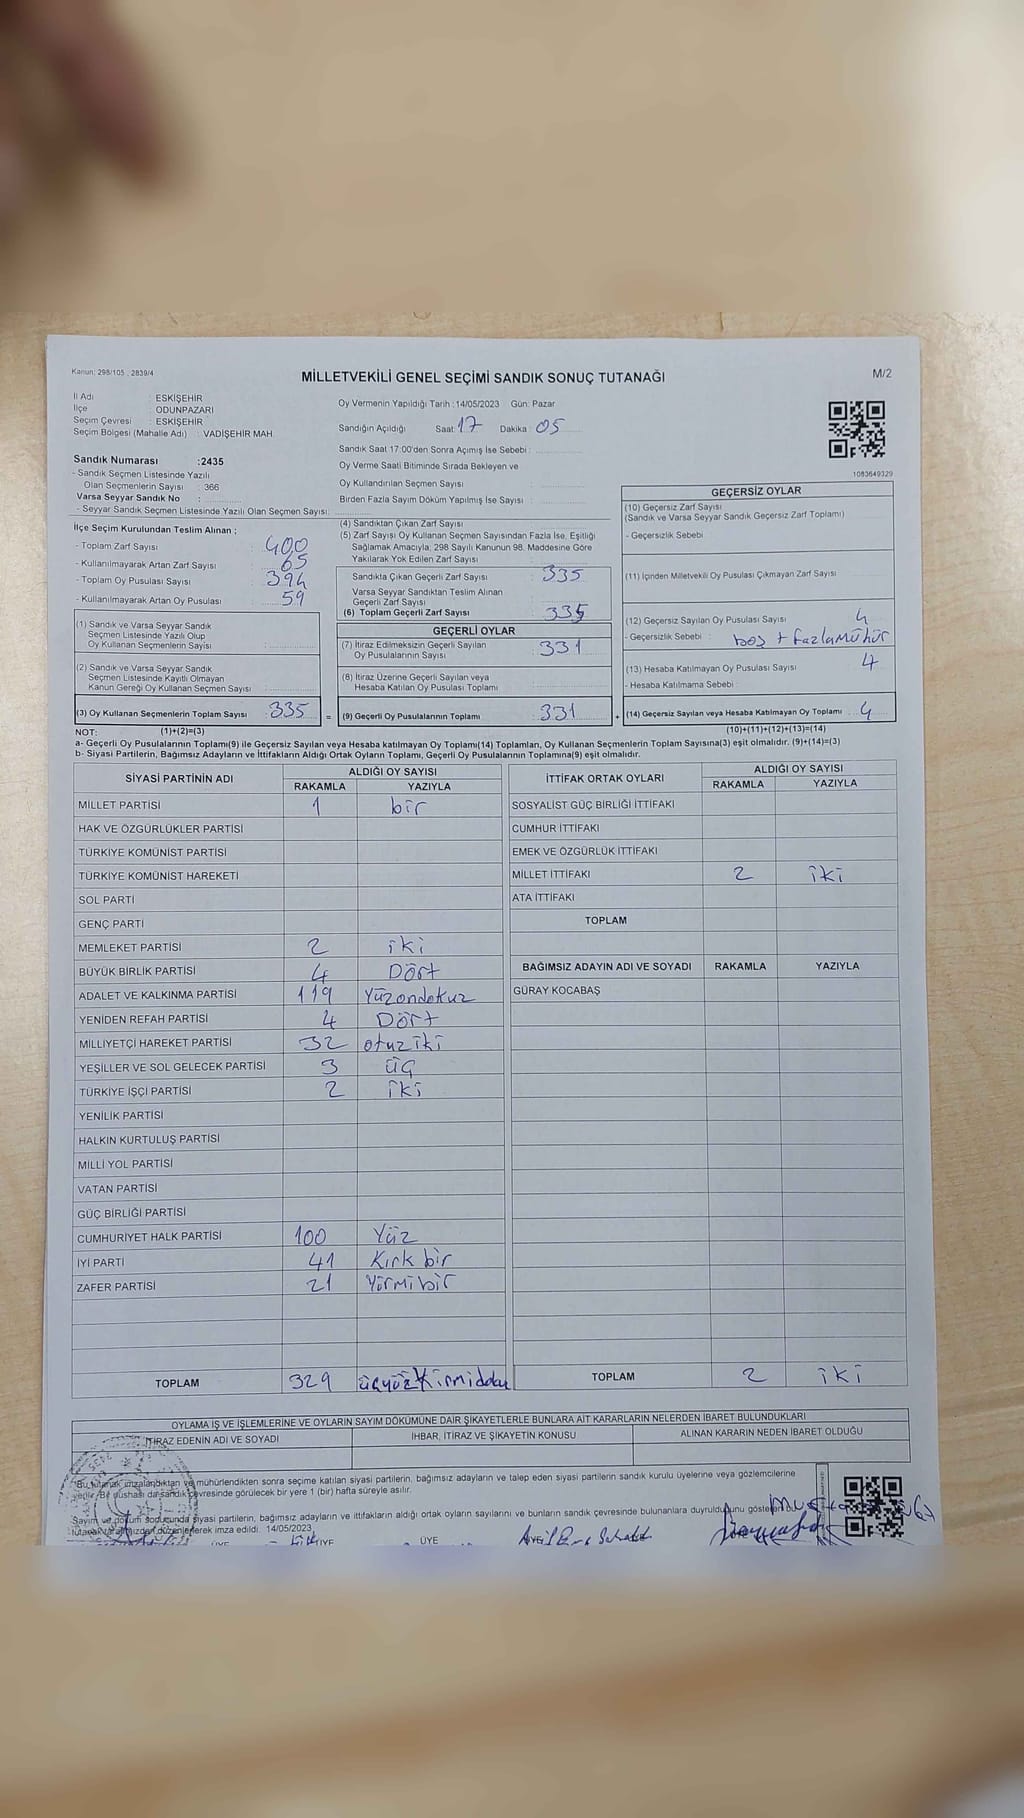 Kanun: 298/105 , 2839/4
MİLLETVEKİLİ GENEL SEÇİMİ SANDIK SONUÇ TUTANAĞI
M/2
İl Adı : ESKİŞEHİR
İlçe : ODUNPAZARI
Seçim Çevresi : ESKİŞEHİR
Seçim Bölgesi (Mahalle Adı) : VADİŞEHİR MAH.
Sandık Numarası :2435
- Sandık Seçmen Listesinde Yazılı
Olan Seçmenlerin Sayısı : 366
Varsa Seyyar Sandık No :
- Seyyar Sandık Seçmen Listesinde Yazılı Olan Seçmen Sayısı:
Oy Vermenin Yapıldığı Tarih : 14/05/2023 Gün: Pazar
Sandığın Açıldığı Saat: 17 Dakika : 05
Sandık Saat 17:00'den Sonra Açımış İse Sebebi :
Oy Verme Saati Bitiminde Sırada Bekleyen ve
Oy Kullandırılan Seçmen Sayısı :
Birden Fazla Sayım Döküm Yapılmış İse Sayısı :
1083649329
İlçe Seçim Kurulundan Teslim Alınan ;
- Toplam Zarf Sayısı : 400
- Kullanılmayarak Artan Zarf Sayısı : 65
- Toplam Oy Pusulası Sayısı : 394
- Kullanılmayarak Artan Oy Pusulası : 59
(1) Sandık ve Varsa Seyyar Sandık
Seçmen Listesinde Yazılı Olup
Oy Kullanan Seçmenlerin Sayısı :
(2) Sandık ve Varsa Seyyar Sandık
Seçmen Listesinde Kayıtlı Olmayan
Kanun Gereği Oy Kullanan Seçmen Sayısı :
(3) Oy Kullanan Seçmenlerin Toplam Sayısı : 335
(4) Sandıktan Çıkan Zarf Sayısı :
(5) Zarf Sayısı Oy Kullanan Seçmen Sayısından Fazla İse, Eşitliği
Sağlamak Amacıyla, 298 Sayılı Kanunun 98. Maddesine Göre
Yakılarak Yok Edilen Zarf Sayısı :
Sandıkta Çıkan Geçerli Zarf Sayısı : 335
Varsa Seyyar Sandıktan Teslim Alınan
Geçerli Zarf Sayısı :
(6) Toplam Geçerli Zarf Sayısı : 335
GEÇERLİ OYLAR
(7) İtiraz Edilmeksizin Geçerli Sayılan
Oy Pusulalarının Sayısı : 331
(8) İtiraz Üzerine Geçerli Sayılan veya
Hesaba Katılan Oy Pusulası Toplamı :
= (9) Geçerli Oy Pusulalarının Toplamı : 331
GEÇERSİZ OYLAR
(10) Geçersiz Zarf Sayısı
(Sandık ve Varsa Seyyar Sandık Geçersiz Zarf Toplamı)
- Geçersizlik Sebebi
(11) İçinden Milletvekili Oy Pusulası Çıkmayan Zarf Sayısı
(12) Geçersiz Sayılan Oy Pusulası Sayısı 4
- Geçersizlik Sebebi : boş + fazla mühür
(13) Hesaba Katılmayan Oy Pusulası Sayısı 4
- Hesaba Katılmama Sebebi :
+ (14) Geçersiz Sayılan veya Hesaba Katılmayan Oy Toplamı 4
NOT: (1)+(2)=(3)
(10)+(11)+(12)+(13)=(14)
a- Geçerli Oy Pusulalarının Toplamı(9) ile Geçersiz Sayılan veya Hesaba katılmayan Oy Toplamı(14) Toplamları, Oy Kullanan Seçmenlerin Toplam Sayısına(3) eşit olmalıdır. (9)+(14)=(3)
b- Siyasi Partilerin, Bağımsız Adayların ve İttifakların Aldığı Ortak Oyların Toplamı, Geçerli Oy Pusulalarının Toplamına(9) eşit olmalıdır.
SİYASİ PARTİNİN ADI
ALDIĞI OY SAYISI
RAKAMLA YAZIYLA
MİLLET PARTİSİ 1 bir
HAK VE ÖZGÜRLÜKLER PARTİSİ
TÜRKİYE KOMÜNİST PARTİSİ
TÜRKİYE KOMÜNİST HAREKETİ
SOL PARTİ
GENÇ PARTİ
MEMLEKET PARTİSİ 2 iki
BÜYÜK BİRLİK PARTİSİ 4 Dört
ADALET VE KALKINMA PARTİSİ 119 Yüzondokuz
YENİDEN REFAH PARTİSİ 4 Dört
MİLLİYETÇİ HAREKET PARTİSİ 32 otuz iki
YEŞİLLER VE SOL GELECEK PARTİSİ 3 üç
TÜRKİYE İŞÇİ PARTİSİ 2 iki
YENİLİK PARTİSİ
HALKIN KURTULUŞ PARTİSİ
MİLLİ YOL PARTİSİ
VATAN PARTİSİ
GÜÇ BİRLİĞİ PARTİSİ
CUMHURİYET HALK PARTİSİ 100 Yüz
İYİ PARTİ 41 Kırk bir
ZAFER PARTİSİ 21 Yirmi bir
TOPLAM 329
İTTİFAK ORTAK OYLARI
ALDIĞI OY SAYISI
RAKAMLA YAZIYLA
SOSYALİST GÜÇ BİRLİĞİ İTTİFAKI
CUMHUR İTTİFAKI
EMEK VE ÖZGÜRLÜK İTTİFAKI
MİLLET İTTİFAKI 2 iki
ATA İTTİFAKI
TOPLAM
BAĞIMSIZ ADAYIN ADI VE SOYADI RAKAMLA YAZIYLA
GÜRAY KOCABAŞ
TOPLAM 2 iki
OYLAMA İŞ VE İŞLEMLERİNE VE OYLARIN SAYIM DÖKÜMÜNE DAİR ŞİKAYETLERLE BUNLARA AİT KARARLARIN NELERDEN İBARET BULUNDUKLARI
İTİRAZ EDENİN ADI VE SOYADI İHBAR, İTİRAZ VE ŞİKAYETİN KONUSU ALINAN KARARIN NEDEN İBARET OLDUĞU
Bu tutanak imzalandıktan ve mühürlendikten sonra seçime katılan siyasi partilerin, bağımsız adayların ve talep eden siyasi partilerin sandık kurulu üyelerine veya gözlemcilerine
verilir. Bir nüshası da sandık çevresinde görülecek bir yere 1 (bir) hafta süreyle asılır.
Sayım ve döküm sonucunda siyasi partilerin, bağımsız adayların ve ittifakların aldığı ortak oyların sayılarını ve bunların sandık çevresinde bulunanlara duyrulduğunu gösteren bu
tutanak tarafımızdan düzenlenerek imza edildi. 14/05/2023
ÜYE ÜYE ÜYE